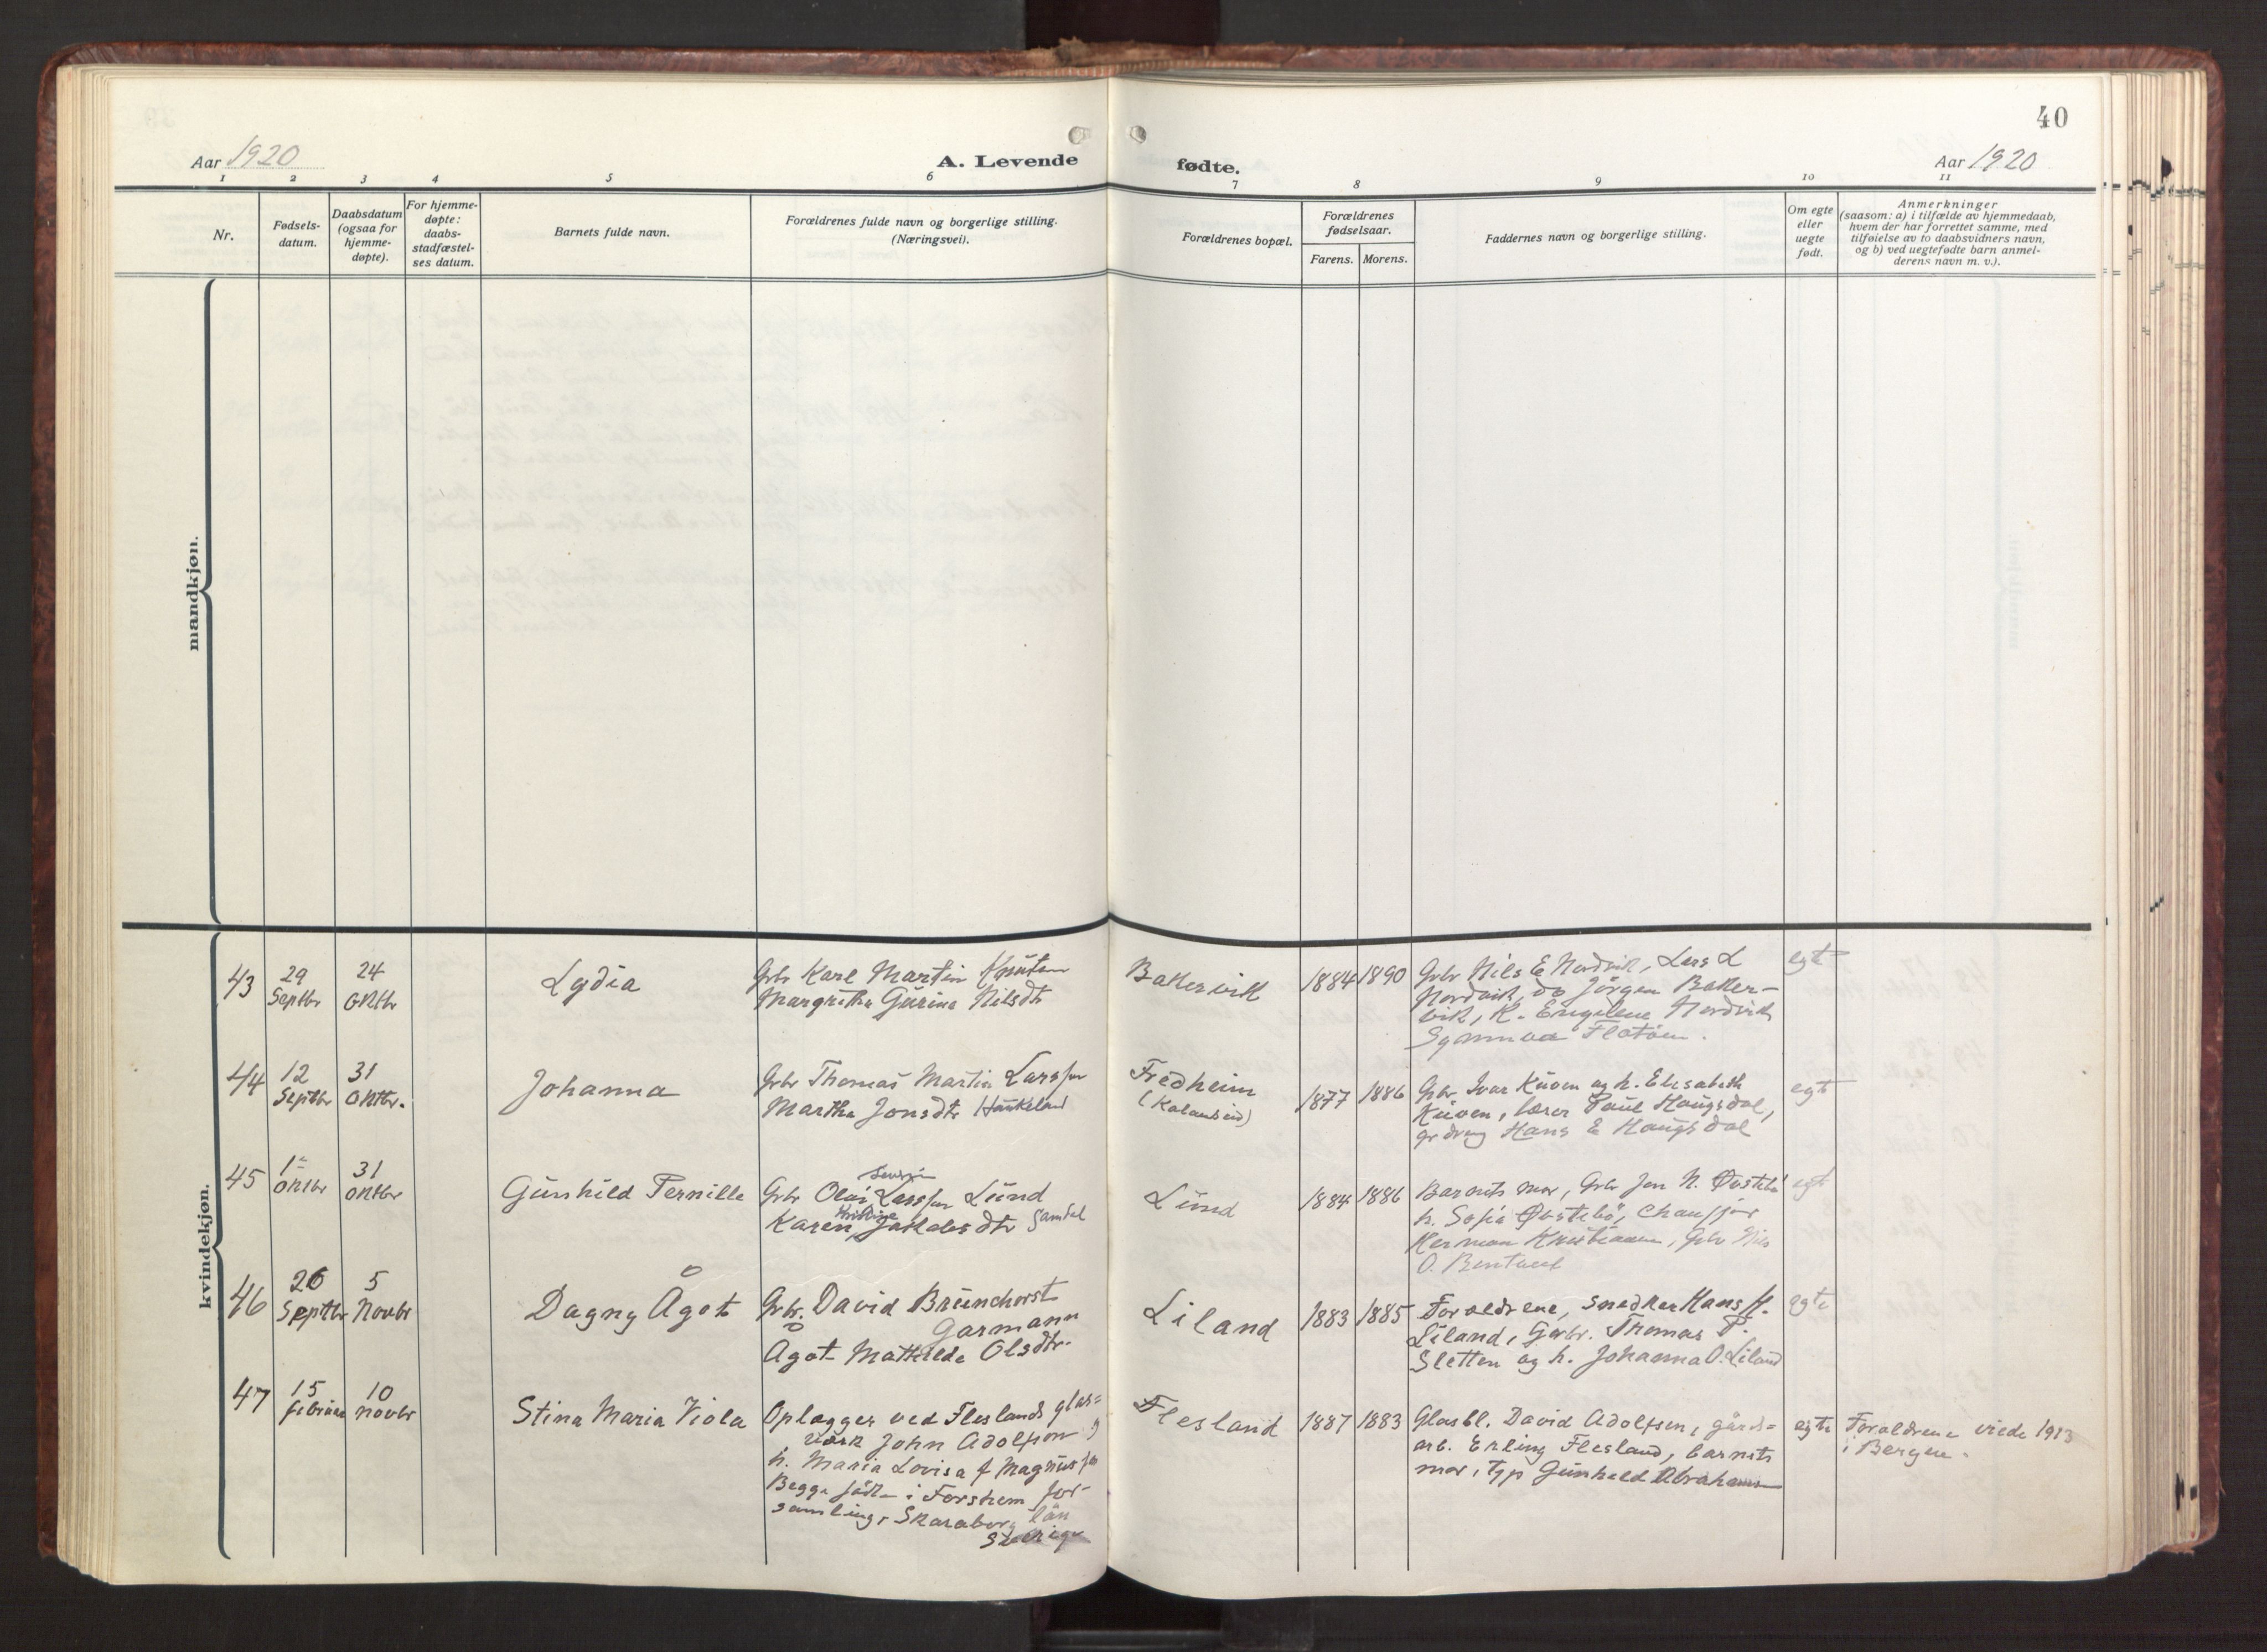 40
Aar 1920
A. Levende
fødte.
Aar 1920
1 2 3 4 5 6 7 8 9 10 11
Nr.
Fødsels-
datum.
Daabsdatum
(ogsaa for
hjemme-
døpte).
For hjemme-
døpte:
daabs-
stadfæstel-
ses datum.
Barnets fulde navn.
Forældrenes fulde navn og borgerlige stilling.
(Næringsvei).
Forældrenes bopæl.
Forældrenes
fødselsaar.
Farens. Morens.
Faddernes navn og borgerlige stilling.
Om egte
eller
uegte
født.
Anmerkninger
(saasom: a) i tilfælde av hjemmedaab,
hvem der har forrettet samme, med
tilføielse av to daabsvidners navn,
og b) ved uegtefødte barn anmel-
derens navn m. v.).
mandkjøn.
kvindekjøn.
43
29
Septbr
24
Oktbr
Lydia
Gbr Karl Martin Knutsen
Margrethe Gurine Nilsdtr
Bakervik
1884 1890
Gbr Nils E Nordvik, Lars L
Nordvik, do Jörgen Baker-
vik, K. Engeline Nordvik
Flatöen.
egte
44
12
Septbr
31
Oktbr.
Johanna
Gbr Thomas Martin Larssen
Martha Jonsdtr Haukeland
Fredheim
(Kalandseid)
1877 1886
Gbr Ivar Kuven og h. Elisabeth
Kuven, lærer Paul Haugsdal,
grdreng Hans E Haugsdal
egte
45
1ste
Oktbr
31
Oktbr
Gunhild Pernille
Gbr Olai Larssen Lund
Karen Kristine Jakobsdtr
Lund
1884 1886
Barnets mor, Gbr Jon N. Øvstebö
h. Sofie Øvstebö, Chaufför
Herman Kristiansen, Gbr Nils
O.
egte
46
26
Septbr
5
Novbr
Dagny Ågot
Gbr. David Brunchorst
Garmann
Ågot Mathilde Olsdtr.
Liland
1883 1885
Forældrene, Snedker Hans H.
Liland, Gbr. Thomas P.
Sletten og h. Johanna O. Liland
egte
47
15
februar
10
novbr
Stina Maria Viola
Oplægger ved Fleslands glas=
værk John Adolfson og
h. Maria Lovisa f Magnusson
Begge födte i Forshem for-
samling, Skaraborg län
Sverige
Flesland
1887 1883
Glasbl. David Adolfsen, gårds=
arb. Erling Flesland, barnets
mor, tjp Gunhild Abrahamsen
egte
Foraldrene viede 1913
i Bergen.